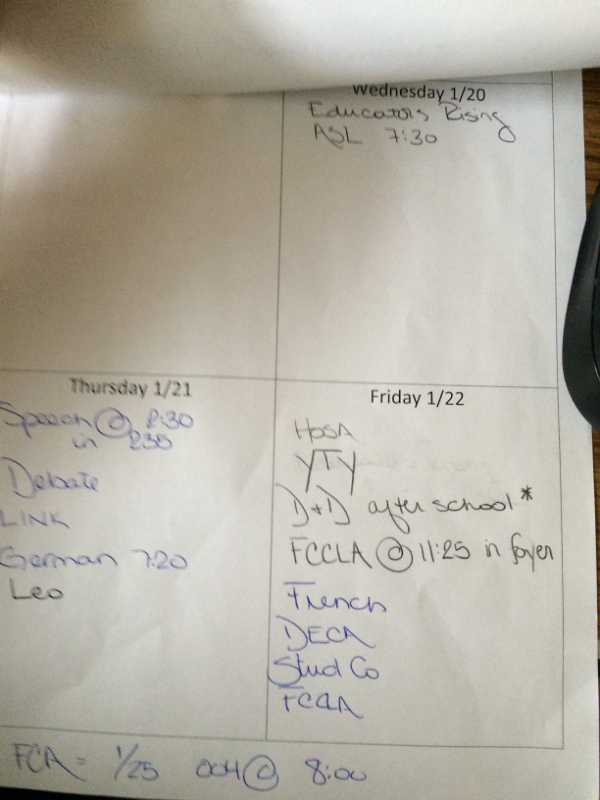 Wednesday 1/20
Educators Rising
ASL 7:30
Thursday 1/21
Speech @ 2:30
in 230
Debate
LINK
German 7:20
Leo
Friday 1/22
HOSA
YTY
D+D after school*
FCCLA @ 11:25 in foyer
French
DECA
Stud Co
FCCLA
FCA = 1/25 004 @ 8:00